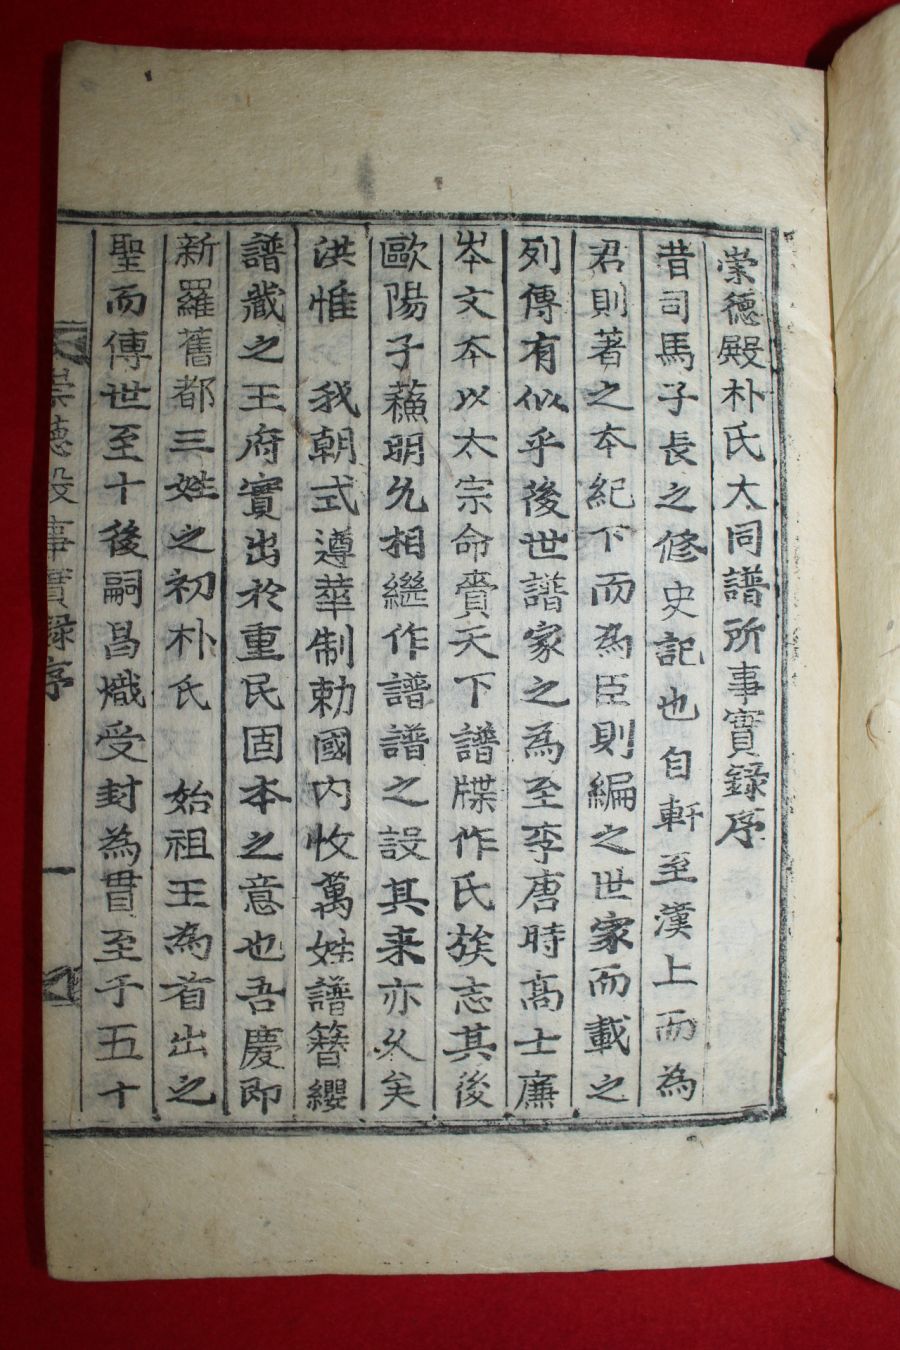 崇德殿朴氏大同譜所事實録序
昔司馬子長之修史記也自軒至漢上而為
君則著之本紀下而為臣則編之世家而載之
列傳有似乎後世譜家之為至李唐時高士廉
岑文本以太宗命賷天下譜牒作氏族志其後
歐陽子蘓明允相繼作譜譜之設其来亦久矣
洪惟　我朝式遵華制勅國内收萬姓譜簪纓
譜藏之王府實出於重民固本之意也吾慶即
新羅舊都三姓之初朴氏　始祖王為首出之
聖而傳世至十後嗣昌熾受封為貫至于五十
崇德殿事實録序　一